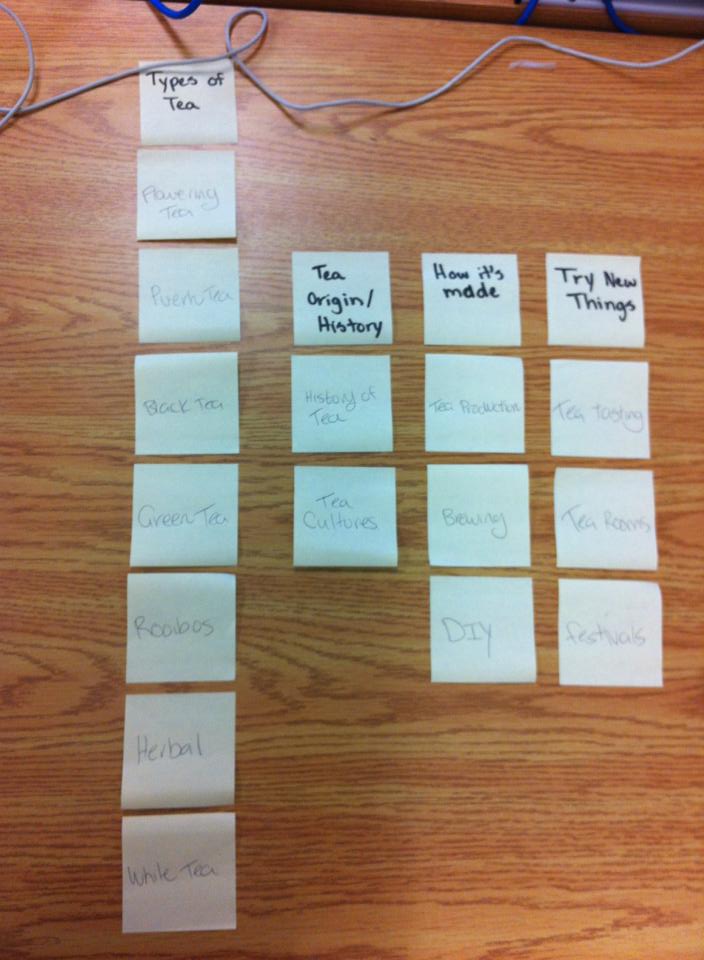 Types of
Tea
Flowering
Tea
Puerh Tea
Black Tea
Green Tea
Rooibos
Herbal
White Tea
Tea
Origin/
History
History of
Tea
Tea
Cultures
How it's
made
Tea Production
Brewing
DIY
Try New
Things
Tea Tasting
Tea Rooms
festivals